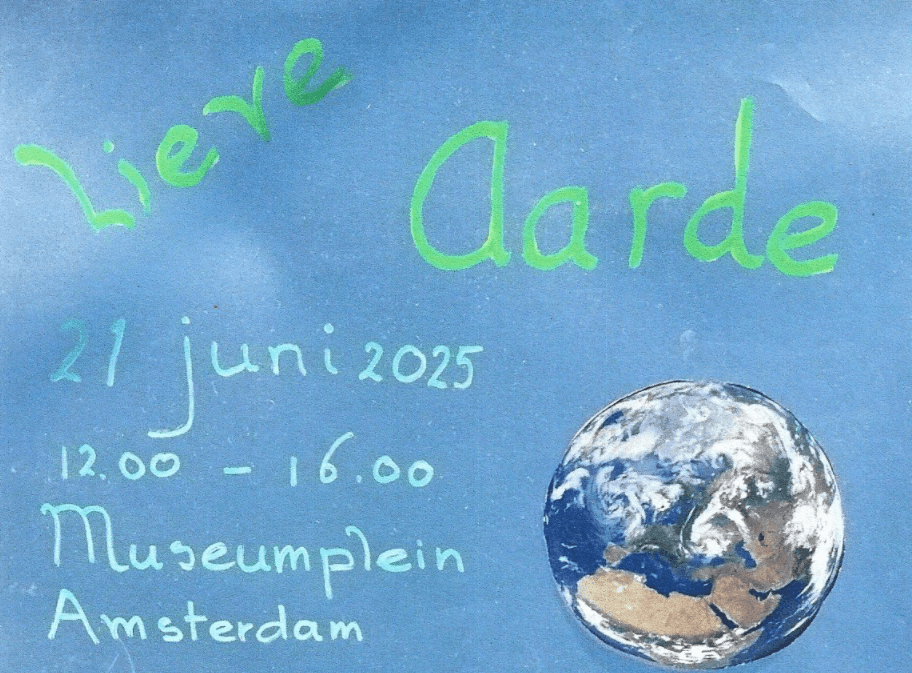 Lieve Aarde
21 juni 2025
12.00 - 16.00
Museumplein
Amsterdam